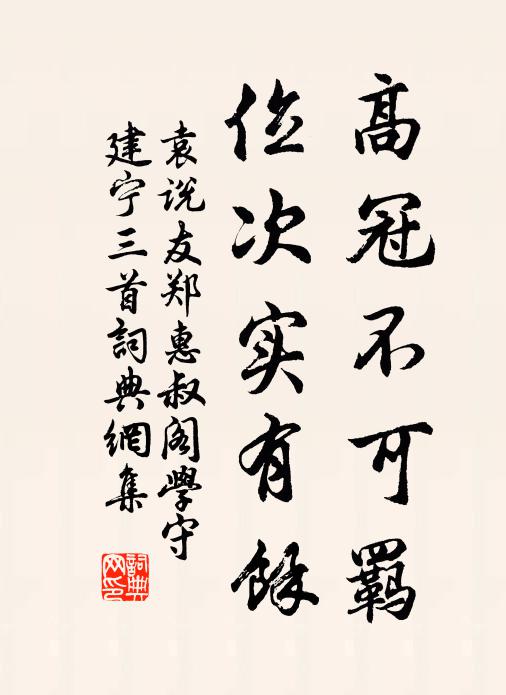 高冠不可羁
位次实有馀
袁说友郑惠叔阁学守
建宁三首詞典網集
詞典网印